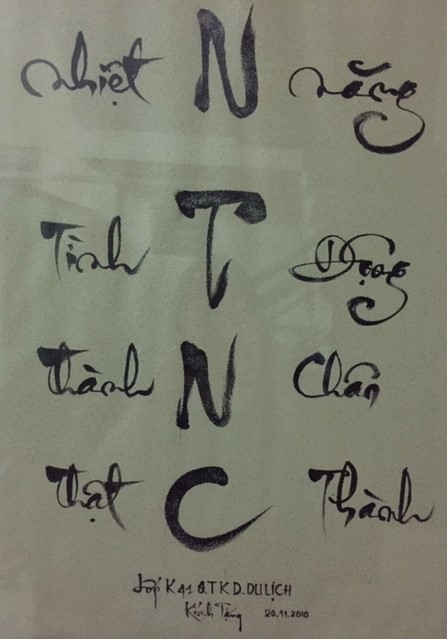 nhiệt N năng
Tình T Động
thành N Chân
thật C Thành
Lớp K41 Q.T.K.D. DU LỊCH
Kính Tặng 20.11.2010